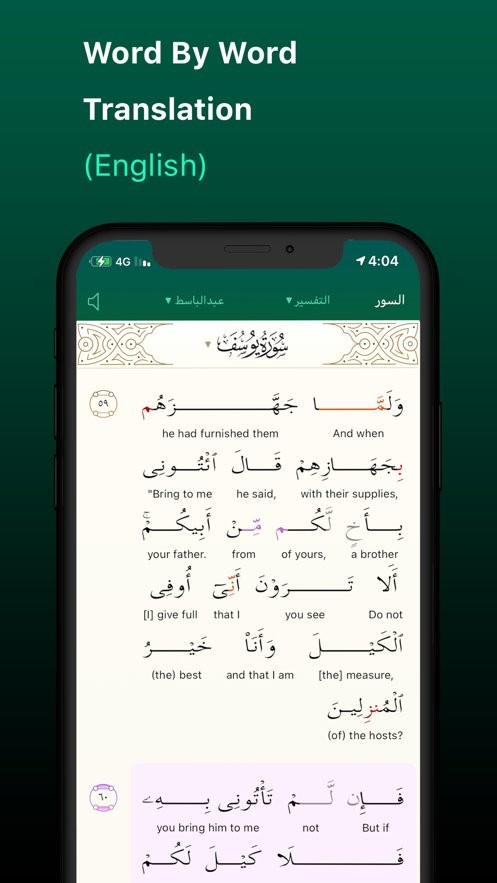 Word By Word
Translation
(English)
4G 4:04
السور التفسير ▼ عبدالباسط ▼
سُورَةُ يُوسُفَ ▼
وَلَمَّا جَهَّزَهُم ٥٩
And when he had furnished them
بِجَهَازِهِمْ قَالَ ٱئْتُونِى
with their supplies, he said, "Bring to me
بِأَخٍ لَّكُم مِّنْ أَبِيكُمْ ۚ
a brother of yours, from your father.
أَلَا تَرَوْنَ أَنِّىٓ أُوفِى
Do not you see that I [I] give full
ٱلْكَيْلَ وَأَنَا۠ خَيْرُ
[the] measure, and that I am (the) best
ٱلْمُنزِلِينَ
(of) the hosts?
فَإِن لَّمْ تَأْتُونِى بِهِۦ ٦٠
But if not you bring him to me
فَلَا كَيْلَ لَكُمْ